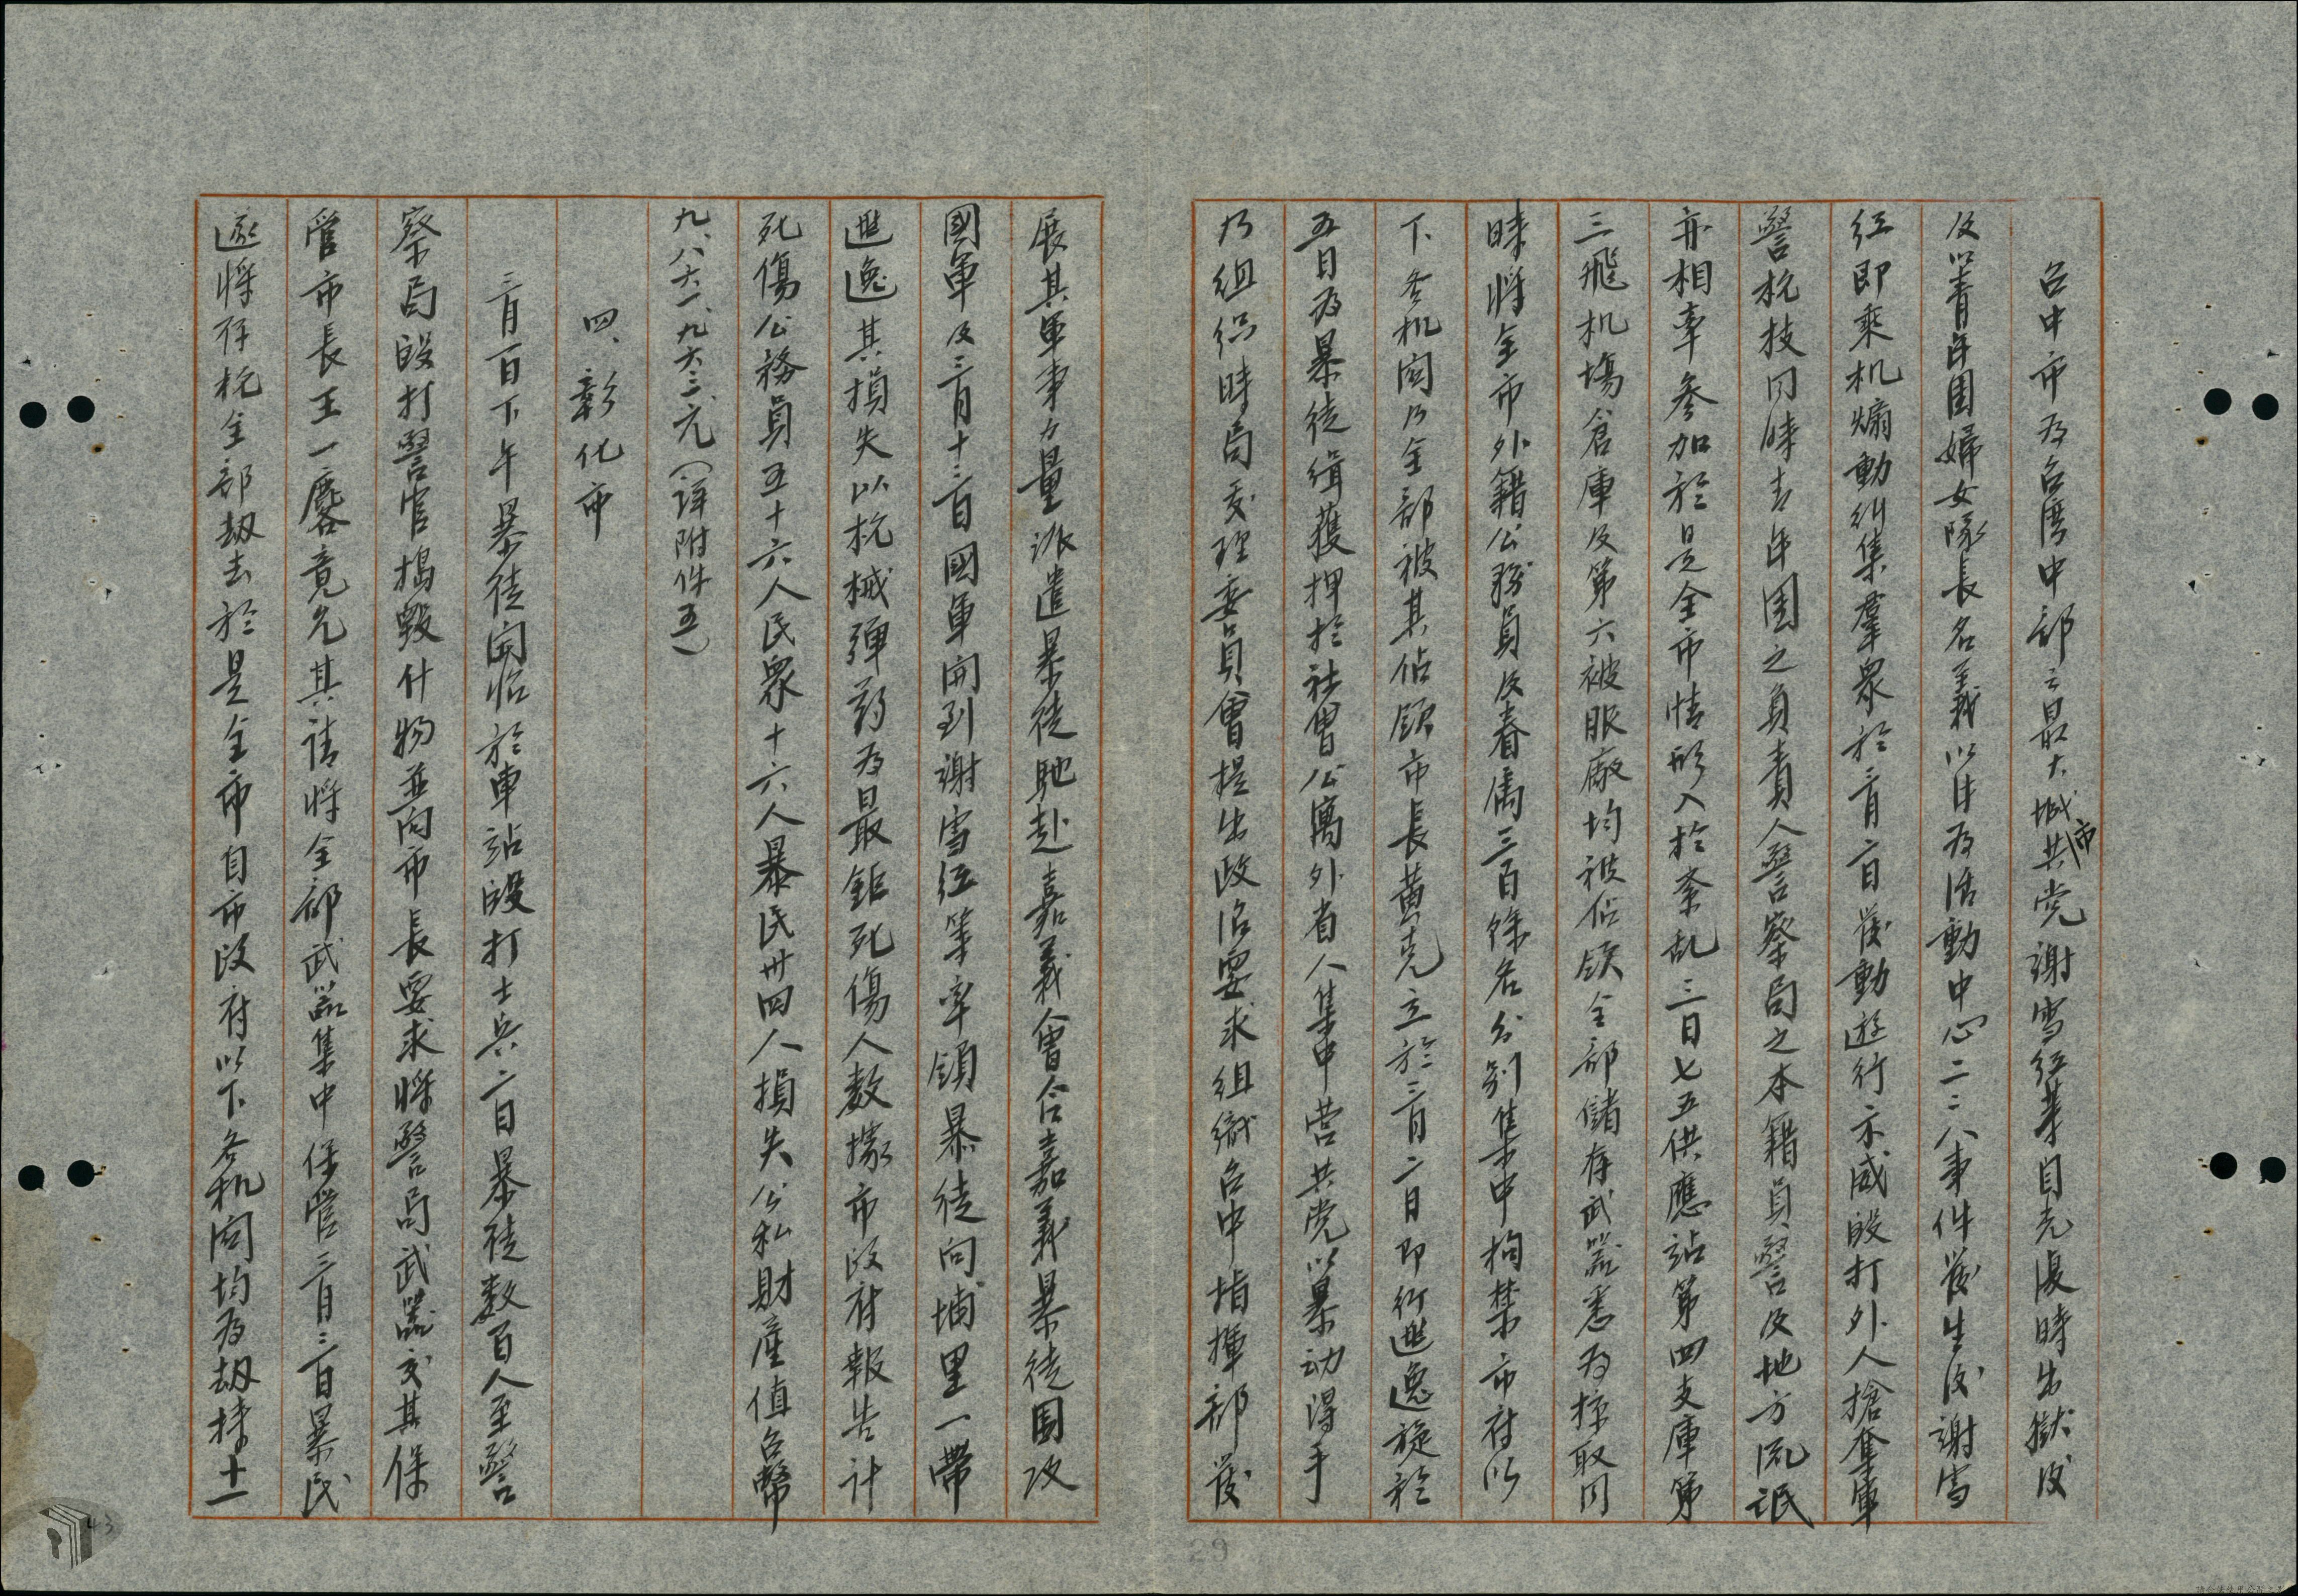 台中市為台灣中部之最大城市共党謝雪紅等自光復時出獄後
及以青年團婦女隊長名義以作為活動中心二二八事件發生後謝雪
紅即乘机煽動糾集羣眾於三月二日發動遊行示威毆打外人搶奪軍
警枪枝同時青年團之負責人警察局之本籍員警及地方流氓
亦相率參加於是全市情形入於紊乱三日七五供應站第四支庫第
三飛机場倉庫及第六被服廠均被佔領全部儲存武器悉為掠取同
時將全市外籍公務員及眷屬三百餘名分别集中拘禁市府以
下各机関乃全部被其佔領市長黄克立於三月二日即行逃逸旋於
五日為暴徒緝獲押於社會公寓外省人集中营共党以暴动得手
乃組织時局處理委員會提出政治要求組織台中指揮部發
展其軍事力量派遣暴徒馳赴嘉義會合嘉義暴徒圍攻
國軍及三月十三日國軍開到謝雪红等率領暴徒向埔里一帶
逃逸其損失以枪械彈药為最鉅死傷人數據市政府報告計
死傷公務員五十六人民眾十六人暴民卅四人損失公私財產值台幣
九、八六一、九六三元（詳附件五）
四、彰化市
三月一日下午暴徒開始於車站毆打士兵二日暴徒數百人至警
察局毆打警官搗毀什物並向市長要求將警局武器交其保
管市長王一麐竟允其請將全部武器集中保管三月三日暴民
遂將存枪全部刼去於是全市自市政府以下各机関均為刼持十一
29
43